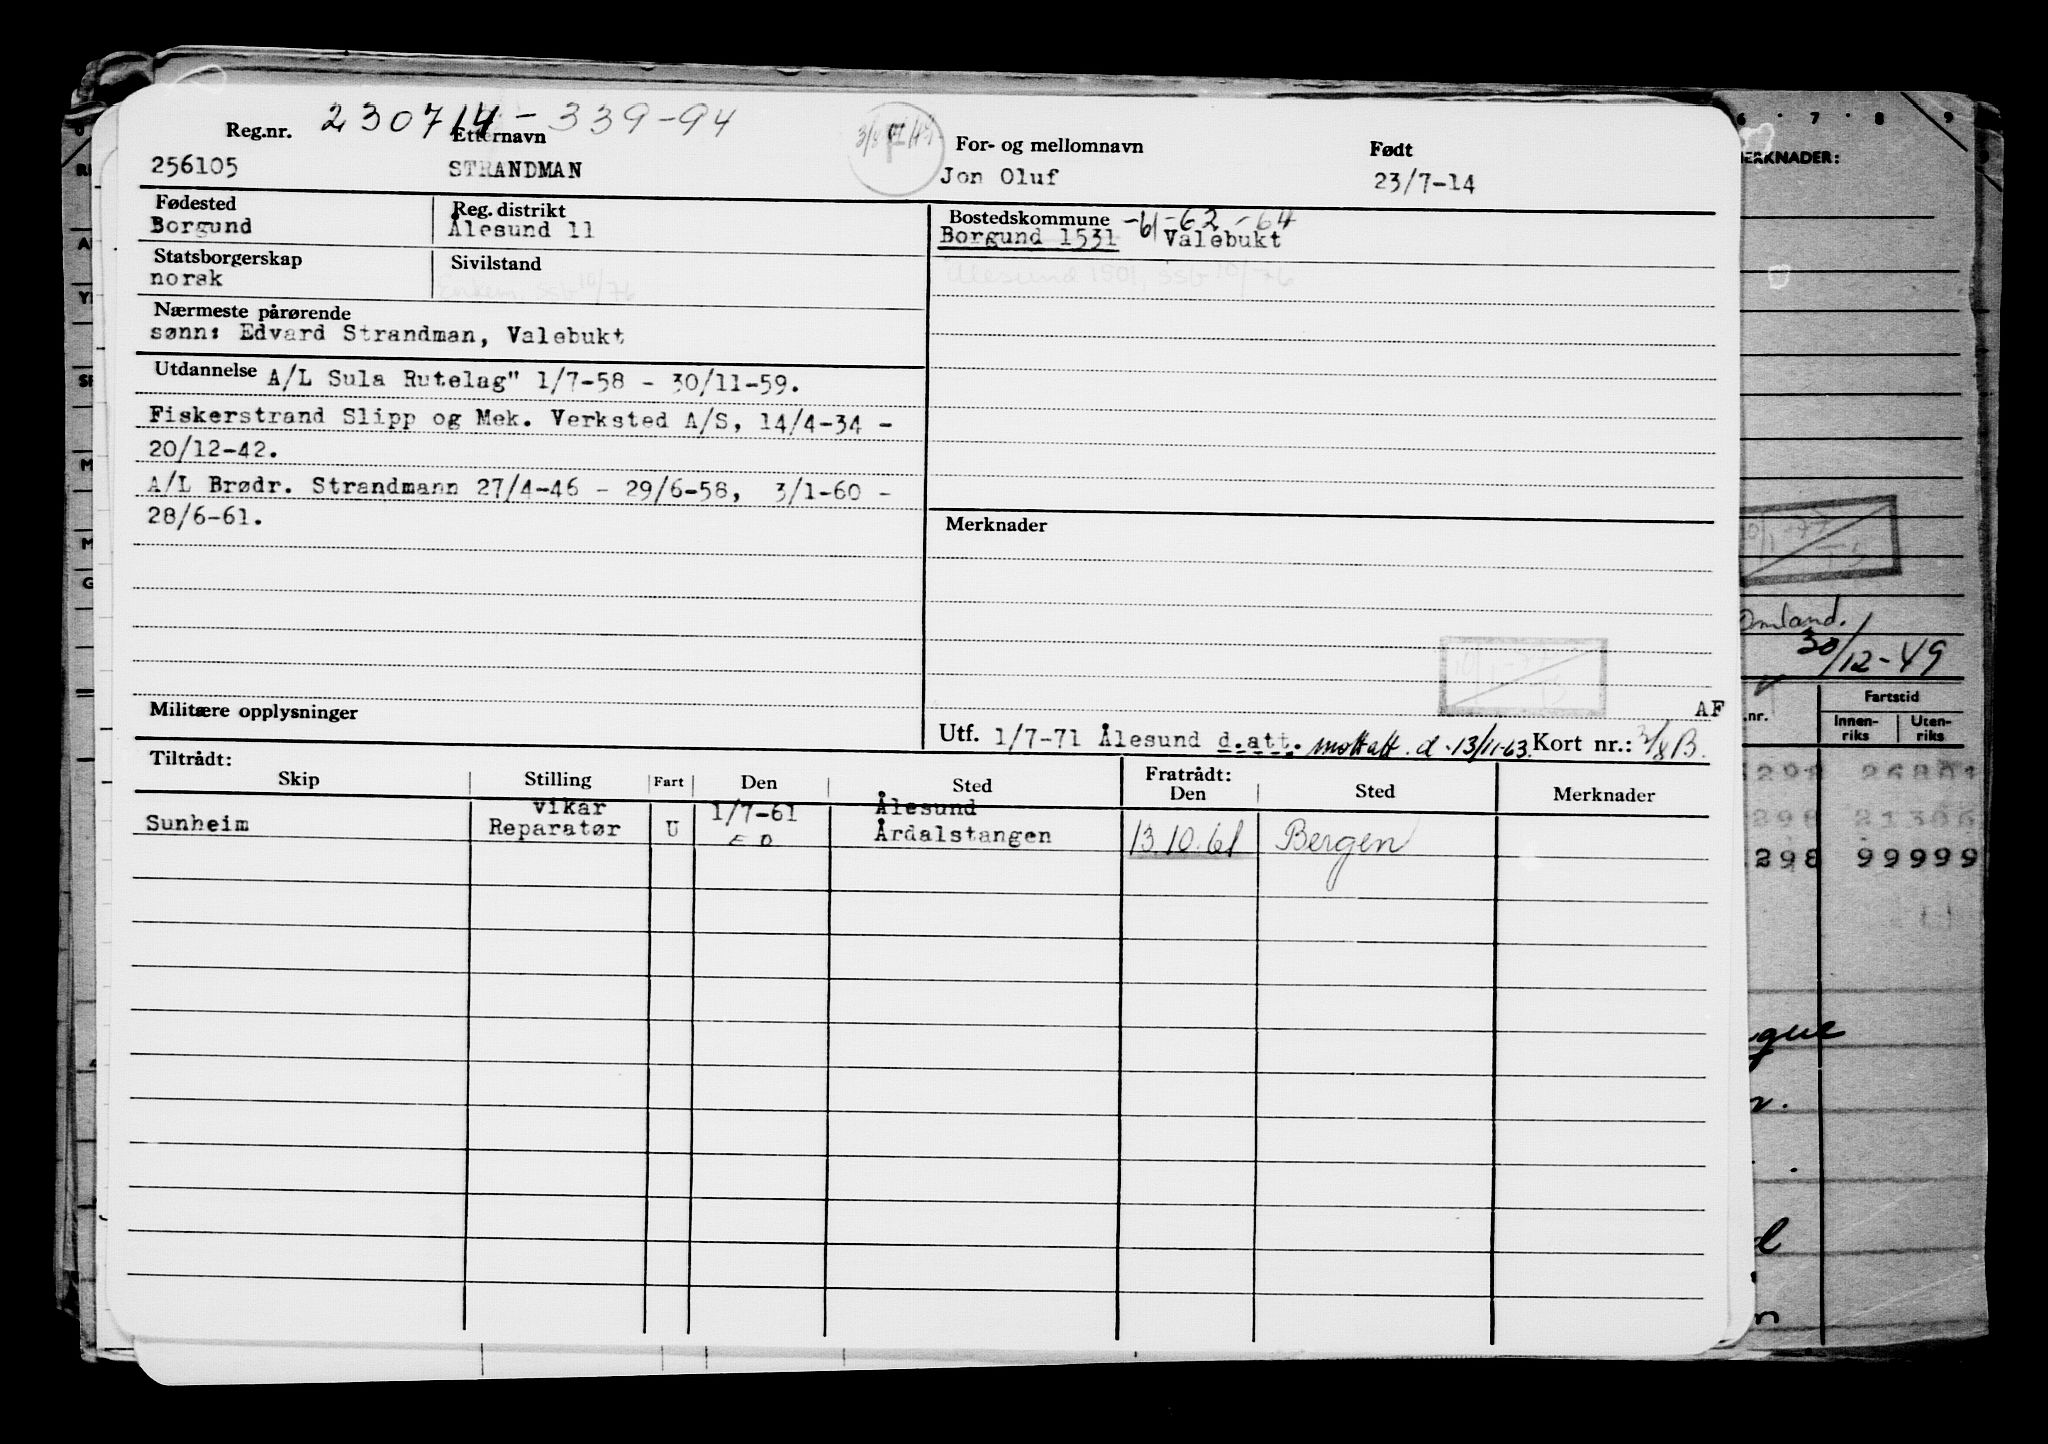 230714-339-94
Reg.nr. Etternavn For- og mellomnavn Født
256105 STRANDMAN Jon Oluf 23/7-14
Fødested Reg. distrikt Bostedskommune -61-62-64
Borgund Ålesund 11 Borgund 1531 Valebukt
Statsborgerskap Sivilstand
norsk Ålesund 1501, SSB 10/-76
Nærmeste pårørende
sønn: Edvard Strandman, Valebukt
Utdannelse A/L Sula Rutelag" 1/7-58 - 30/11-59.
Fiskerstrand Slipp og Mek. Verksted A/S, 14/4-34 -
20/12-42.
A/L Brødr. Strandmann 27/4-46 - 29/6-58, 3/1-60 -
28/6-61.
Merknader
10/1-77
TS
AF
Militære opplysninger
Utf. 1/7-71 Ålesund d.att. mottatt. d. 13/11-63. Kort nr.:
Tiltrådt: Fratrådt:
Skip Stilling Fart Den Sted Den Sted Merknader
vikar 1/7-61 Ålesund
Sunheim Reparatør U Årdalstangen 13.10.61 Bergen
6 7 8 9
MERKNADER:
10/1-77
TS
Omland.
30/12-49
.nr. Fartstid
Innen-riks Uten-riks
298 26801
298 21306
298 99999